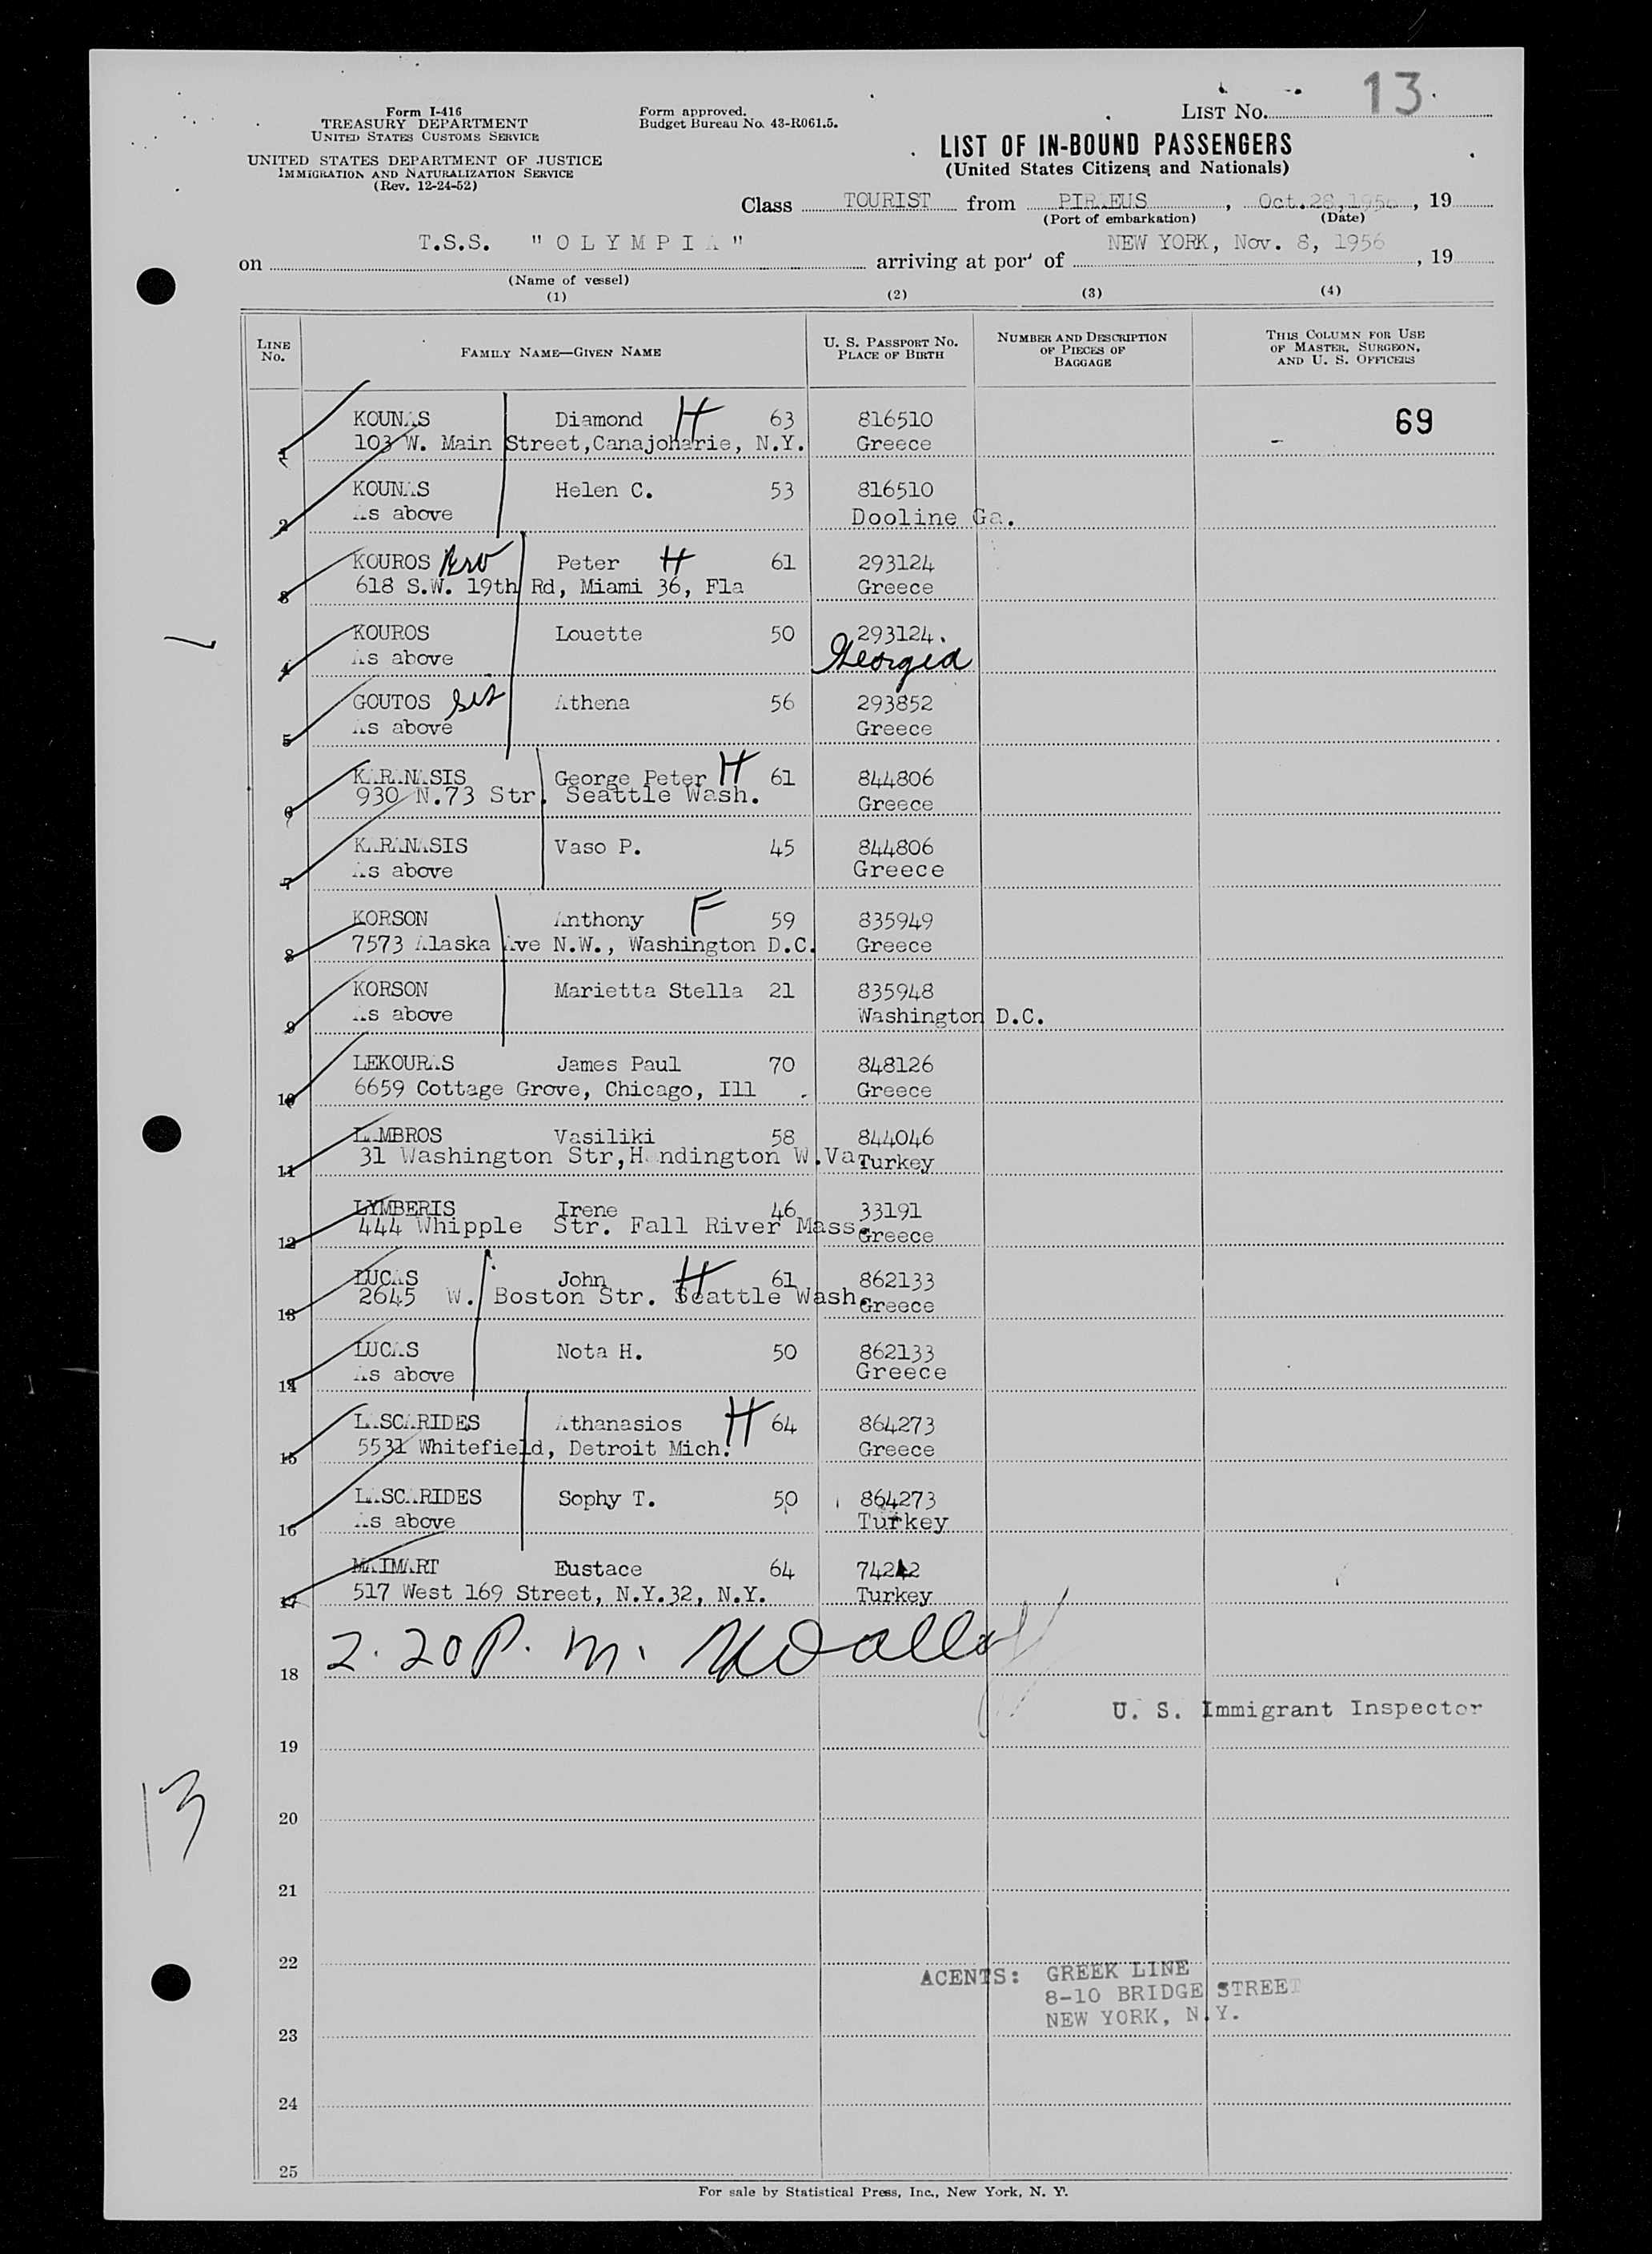 13
Form I-416
TREASURY DEPARTMENT
UNITED STATES CUSTOMS SERVICE
UNITED STATES DEPARTMENT OF JUSTICE
IMMIGRATION AND NATURALIZATION SERVICE
(Rev. 12-24-52)
Form approved.
Budget Bureau No. 43-R061.5.
LIST No.
LIST OF IN-BOUND PASSENGERS
(United States Citizens and Nationals)
Class TOURIST from PIRAEUS, Oct.28,1956, 19
(Port of embarkation) (Date)
on T.S.S. "OLYMPIA" arriving at port of NEW YORK, Nov. 8, 1956, 19
(Name of vessel)
(1) (2) (3) (4)
LINE No. FAMILY NAME—GIVEN NAME U. S. PASSPORT No. PLACE OF BIRTH NUMBER AND DESCRIPTION OF PIECES OF BAGGAGE THIS COLUMN FOR USE OF MASTER, SURGEON, AND U. S. OFFICERS
KOUNAS Diamond H 63 816510 69
1 103 W. Main Street,Canajoharie, N.Y. Greece
KOUNAS Helen C. 53 816510
2 As above Dooline Ga.
KOUROS Bro Peter H 61 293124
3 618 S.W. 19th Rd, Miami 36, Fla Greece
KOUROS Louette 50 293124.
4 As above Georgia
GOUTOS Sis Athena 56 293852
5 As above Greece
KARANASIS George Peter H 61 844806
6 930 N.73 Str. Seattle Wash. Greece
KARANASIS Vaso P. 45 844806
7 As above Greece
KORSON Anthony F 59 835949
8 7573 Alaska Ave N.W., Washington D.C. Greece
KORSON Marietta Stella 21 835948
9 As above Washington D.C.
LEKOURAS James Paul 70 848126
10 6659 Cottage Grove, Chicago, Ill Greece
LAMBROS Vasiliki 58 844046
11 31 Washington Str,Handington W.Va Turkey
LYMBERIS Irene 46 33191
12 444 Whipple Str. Fall River Mass. Greece
LUCAS John H 61 862133
13 2645 W. Boston Str. Seattle Wash. Greece
LUCAS Nota H. 50 862133
14 As above Greece
LASCARIDES Athanasios H 64 864273
15 5531 Whitefield, Detroit Mich. Greece
LASCARIDES Sophy T. 50 864273
16 As above Turkey
MAIMART Eustace 64
17 517 West 169 Street, N.Y.32, N.Y. Turkey
18 2.20 P.m.
U. S. Immigrant Inspector
19
13
20
21
22
ACENTS: GREEK LINE
8-10 BRIDGE STREET
NEW YORK, N.Y.
23
24
25
For sale by Statistical Press, Inc., New York, N. Y.